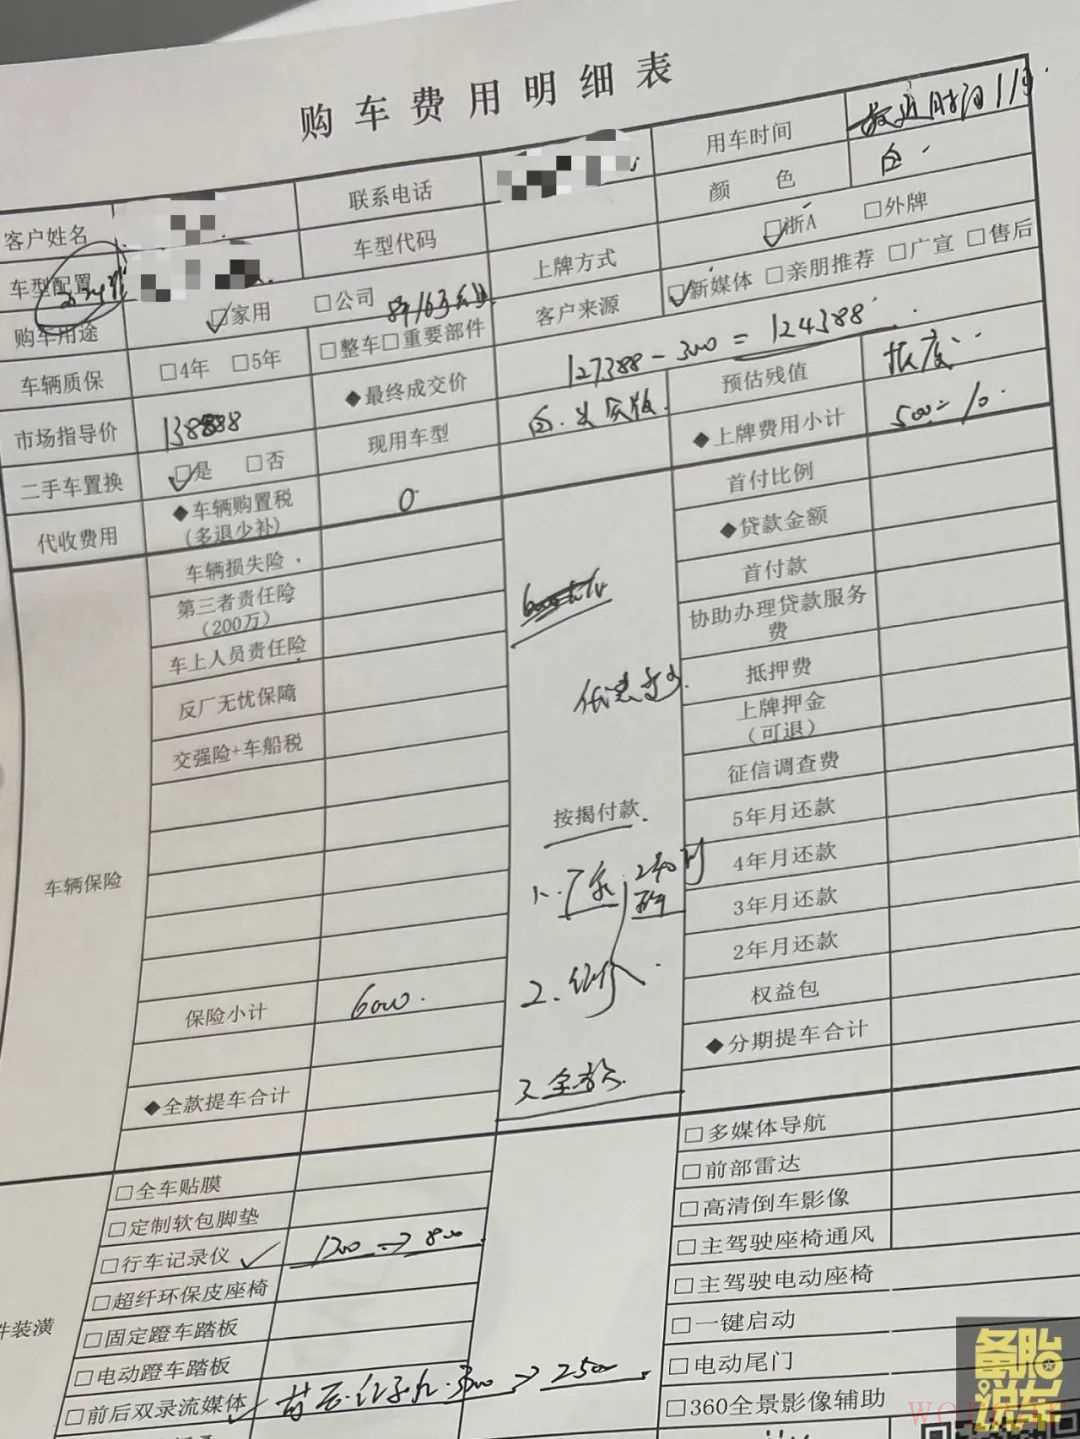 购车费用明细表
客户姓名 联系电话 用车时间
颜 色 白
车型配置 车型代码 上牌方式 ☑浙A □外牌
购车用途 ☑家用 □公司 客户来源 ☑新媒体 □亲朋推荐 □广宣 □售后
车辆质保 □4年 □5年 □整车□重要部件 127388-3000=124388
市场指导价 138888 ◆最终成交价 预估残值
二手车置换 ☑是 □否 现用车型 ◆上牌费用小计 500
代收费用 ◆车辆购置税(多退少补) 0 首付比例
车辆损失险 ◆贷款金额
第三者责任险(200万) 首付款
车上人员责任险 协助办理贷款服务费
反厂无忧保障 抵押费
交强险+车船税 上牌押金(可退)
征信调查费
按揭付款 5年月还款
4年月还款
车辆保险 3年月还款
2年月还款
保险小计 6000 2. 权益包
3.全款 ◆分期提车合计
◆全款提车合计
□多媒体导航
□全车贴膜 □前部雷达
□定制软包脚垫 □高清倒车影像
□行车记录仪 ✓ 1200→800 □主驾驶座椅通风
□超纤环保皮座椅 □主驾驶电动座椅
件装潢 □固定蹬车踏板 □一键启动
□电动蹬车踏板 □电动尾门
□前后双录流媒体 ✓ 3000→2500 □360全景影像辅助
备胎说车